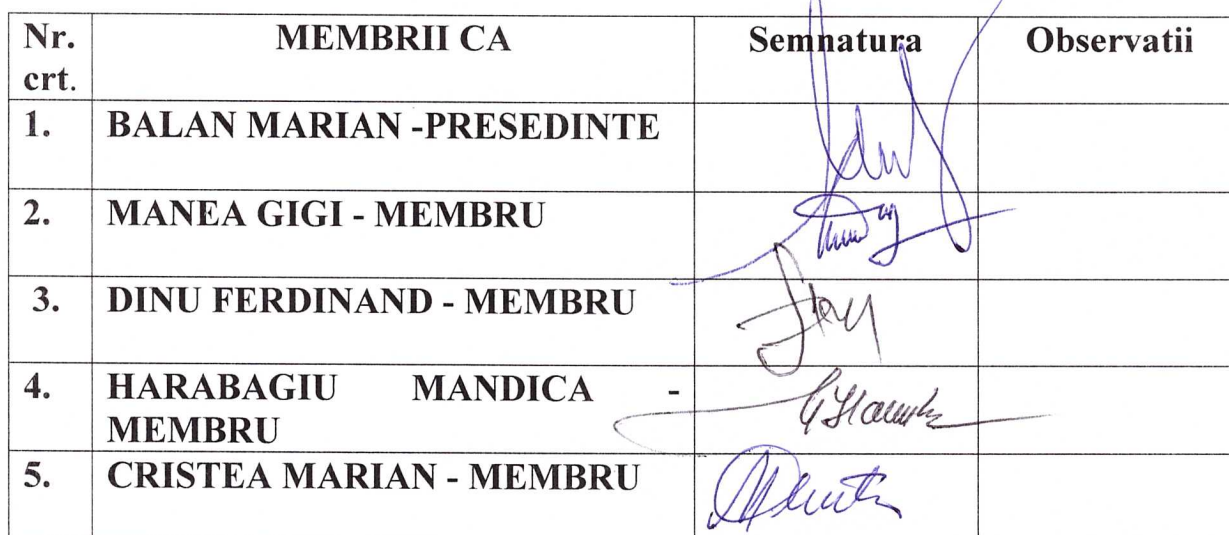 Nr. crt. MEMBRII CA Semnatura Observatii
1. BALAN MARIAN -PRESEDINTE
2. MANEA GIGI - MEMBRU
3. DINU FERDINAND - MEMBRU
4. HARABAGIU MANDICA -
MEMBRU
5. CRISTEA MARIAN - MEMBRU